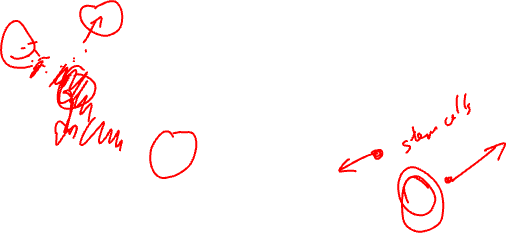 stem cells